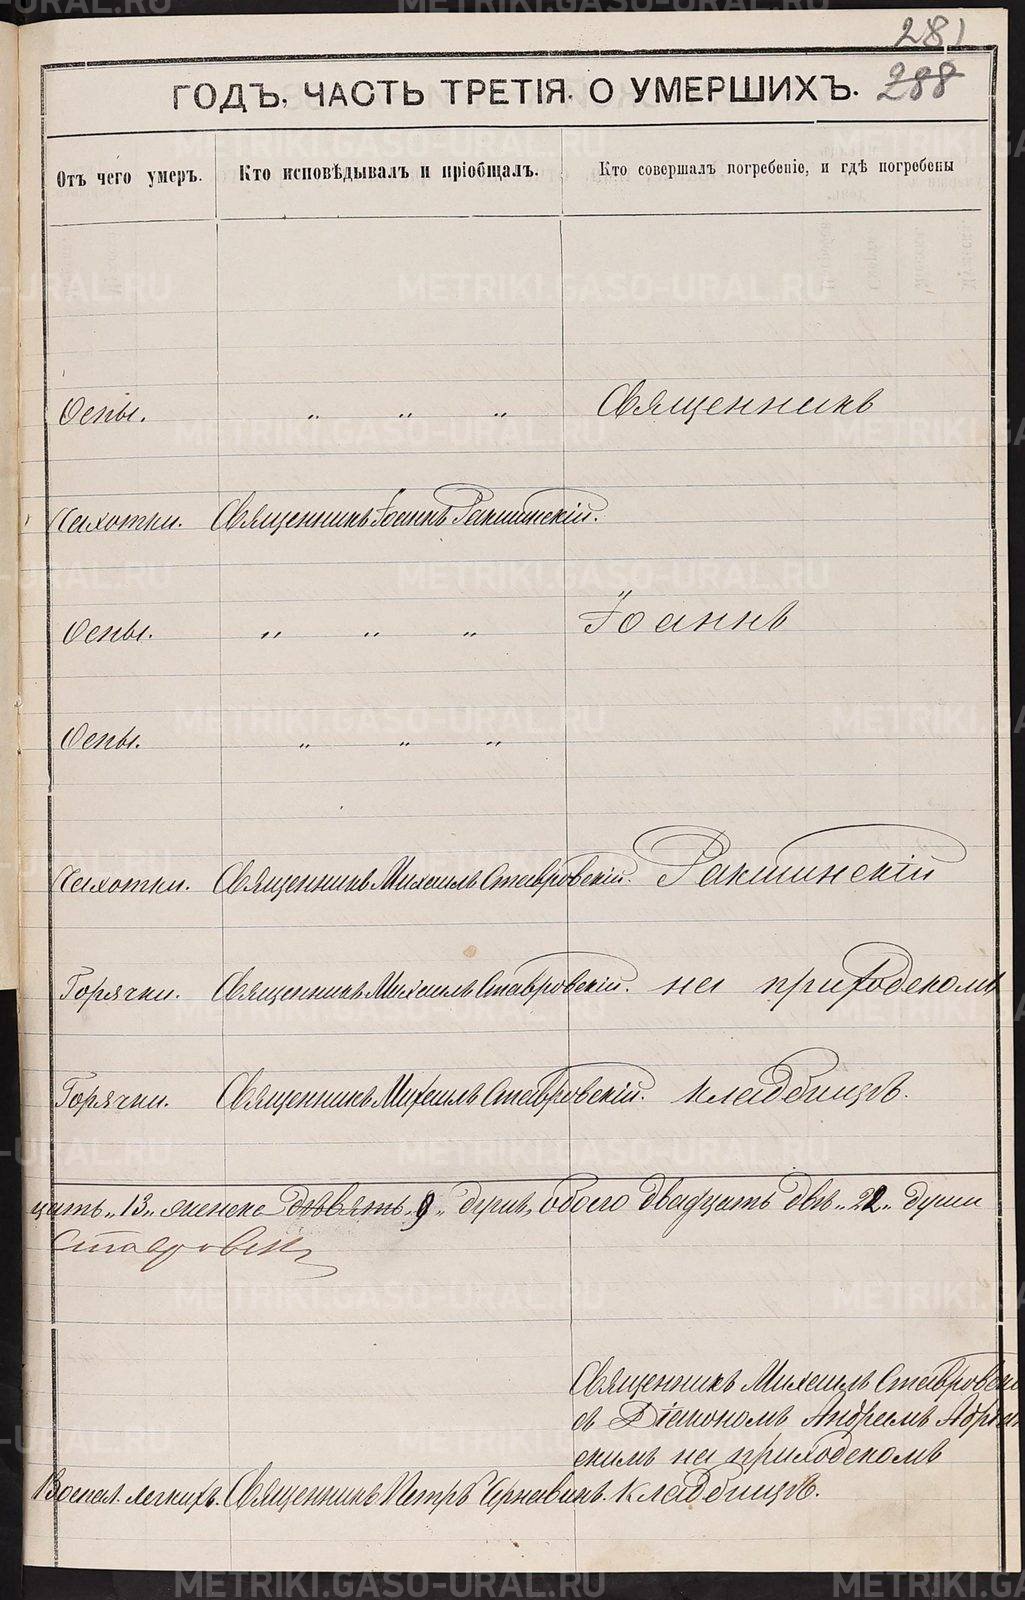 281
288
ГОДЪ, ЧАСТЬ ТРЕТІЯ. О УМЕРШИХЪ.
Отъ чего умеръ. Кто исповѣдывалъ и пріобщалъ. Кто совершалъ погребеніе, и гдѣ погребены
Оспы. „ „ „ Священникъ
Чахотки. Священникъ Іоаннъ Ракшинскій.
Оспы. „ „ „ Іоаннъ
Оспы. „ „ „
Чахотки. Священникъ Михаилъ Ставровскій. Ракшинскій
Горячки. Священникъ Михаилъ Ставровскій. на приходскомъ
Горячки. Священникъ Михаилъ Ставровскій. кладбищѣ.
цать „13„ женска девять „9„ душъ, обоего двадцать двѣ „22„ души
Священникъ Михаилъ Ставровскі
съ Діакономъ Андреемъ Адріан
скимъ на приходскомъ
Воспал. легкихъ. Священникъ Петръ Чернавинъ. кладбищѣ.
METRIKI.GASO-URAL.RU